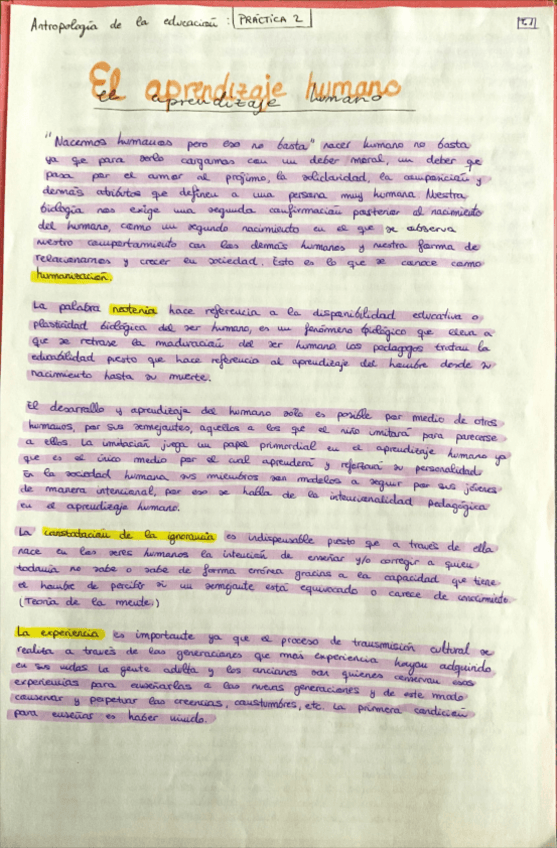 Antropología de la educación: PRÁCTICA 2
El aprendizaje humano
el aprendizaje humano
"Nacemos humanos pero eso no basta" nacer humano no basta
ya que para serlo cargamos con un deber moral, un deber que
pasa por el amor al prójimo, la solidaridad, la compasión y
demás atributos que definen a una persona muy humana. Nuestra
biología nos exige una segunda confirmación posterior al nacimiento
del humano, como un segundo nacimiento en el que se observa
nuestro comportamiento con los demás humanos y nuestra forma de
relacionarnos y crecer en sociedad. Esto es lo que se conoce como
humanización.
La palabra neotenia hace referencia a la disponibilidad educativa o
plasticidad biológica del ser humano, es un fenómeno que lleva a
que se retrase la maduración del ser humano. Los pedagogos tratan la
educabilidad puesto que hace referencia al aprendizaje del hombre desde su
nacimiento hasta su muerte.
El desarrollo y aprendizaje del humano solo es posible por medio de otros
humanos, por sus semejantes, aquellos a los que el niño imitará para parecerse
a ellos. La imitación juega un papel primordial en el aprendizaje humano ya
que es el único medio por el cual aprenderá y reforzará su personalidad.
En la sociedad humana sus miembros son modelos a seguir por sus jóvenes
de manera intencional, por eso se habla de la intencionalidad pedagógica
en el aprendizaje humano.
La constatación de la ignorancia es indispensable puesto que a través de ella
nace en los seres humanos la intención de enseñar y/o corregir a quien
todavía no sabe o sabe de forma errónea gracias a la capacidad que tiene
el hombre de percibir si un semejante está equivocado o carece de conocimiento.
(Teoría de la mente.)
La experiencia es importante ya que el proceso de transmisión cultural se
realiza a través de las generaciones que más experiencia hayan adquirido
en sus vidas. La gente adulta y los ancianos son quienes conservan esas
experiencias para enseñarlas a las nuevas generaciones y de este modo
conservar y perpetuar las creencias, costumbres, etc. La primera condición
para enseñar es haber vivido.